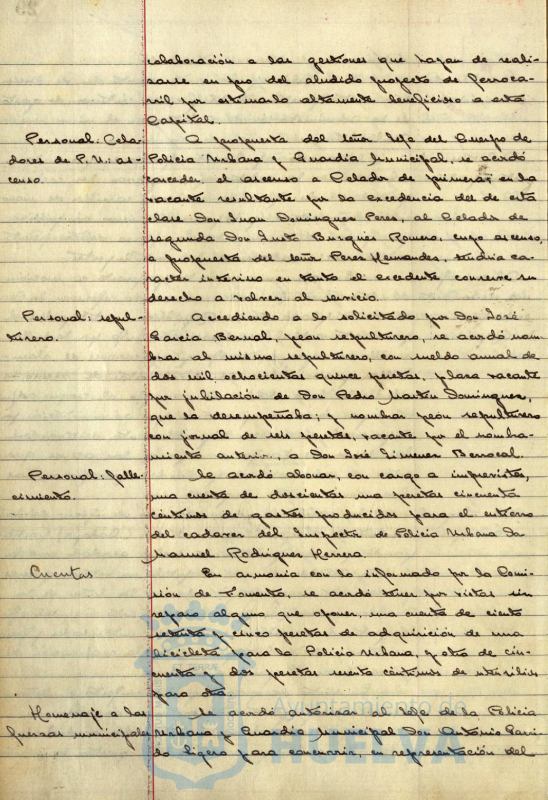 colaboración a las gestiones que hayan de reali-
zarse en pro del aludido proyecto de ferroca-
rril por estimarlo altamente beneficioso a esta
Capital.
Personal: Cela-
dores de P. U.: as-
censo.
A propuesta del señor Jefe del Cuerpo de
Policía Urbana y Guardia Municipal, se acordó
conceder el ascenso a Celador de primera, en la
vacante resultante por la excedencia del de esta
clase Don Juan Domínguez Pérez, al Celador de
segunda Don Justo Burgues Romero, cuyo ascenso,
a propuesta del señor Pérez Hernández, tendría ca-
racter interino en tanto el excedente conserve su
derecho a volver al servicio.
Personal: sepul-
turero.
Accediendo a lo solicitado por Don José
García Bernal, peón sepulturero, se acordó nom-
brar al mismo sepulturero, con sueldo anual de
dos mil ochocientas quince pesetas, plaza vacante
por jubilación de Don Pedro Martín Domínguez,
que la desempeñaba; y nombrar peón sepulturero
con jornal de seis pesetas, vacante por el nombra-
miento anterior, a Don José Jimenez Berrocal.
Personal: falle-
cimiento.
Se acordó abonar, con cargo a imprevistos,
una cuenta de doscientas una pesetas cincuenta
céntimos de gastos producidos para el entierro
del cadaver del Inspector de Policía Urbana Dn
Manuel Rodríguez Herrera.
Cuentas
En armonía con lo informado por la Comi-
sión de Fomento, se acordó tener por vistas sin
reparo alguno que oponer, una cuenta de ciento
setenta y cinco pesetas de adquisición de una
bicicleta para la Policía Urbana, y otra de cin-
cuenta y dos pesetas sesenta céntimos de utensilios
para ota.
Homenaje a las
fuerzas municipales
Se acordó autorizar al Jefe de la Policía
Urbana y Guardia Municipal Don Antonio Garri-
do Ligero para concurrir, en representación del
Ayuntamiento de
HUELVA